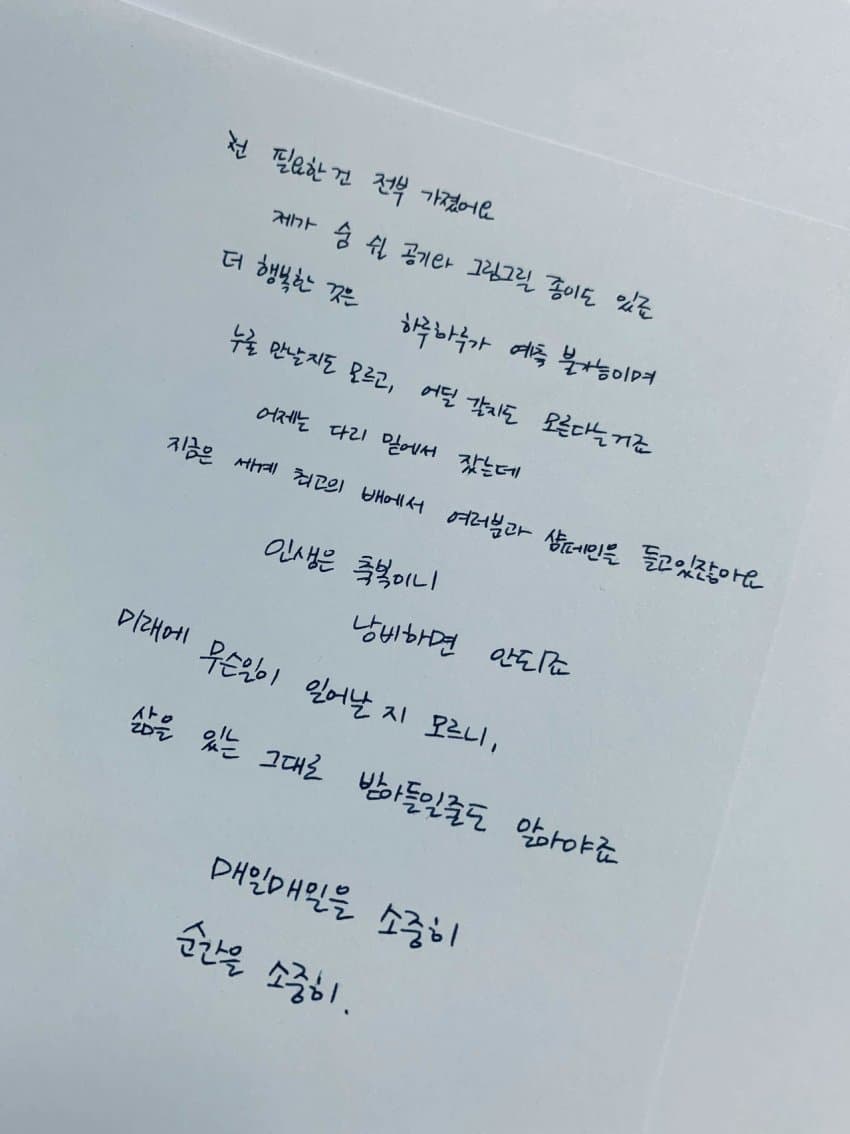 전 필요한건 전부 가졌어요
제가 숨 쉴 공기와 그림그릴 종이도 있죠
더 행복한 것은 하루하루가 예측 불가능이며
누굴 만날지도 모르고, 어딜 갈지도 모른다는거죠
어제는 다리 밑에서 잤는데
지금은 세계 최고의 배에서 여러분과 샴페인을 들고있잖아요
인생은 축복이니
낭비하면 안되죠
미래에 무슨일이 일어날 지 모르니,
삶을 있는 그대로 받아들일줄도 알아야죠
매일매일을 소중히
순간을 소중히.